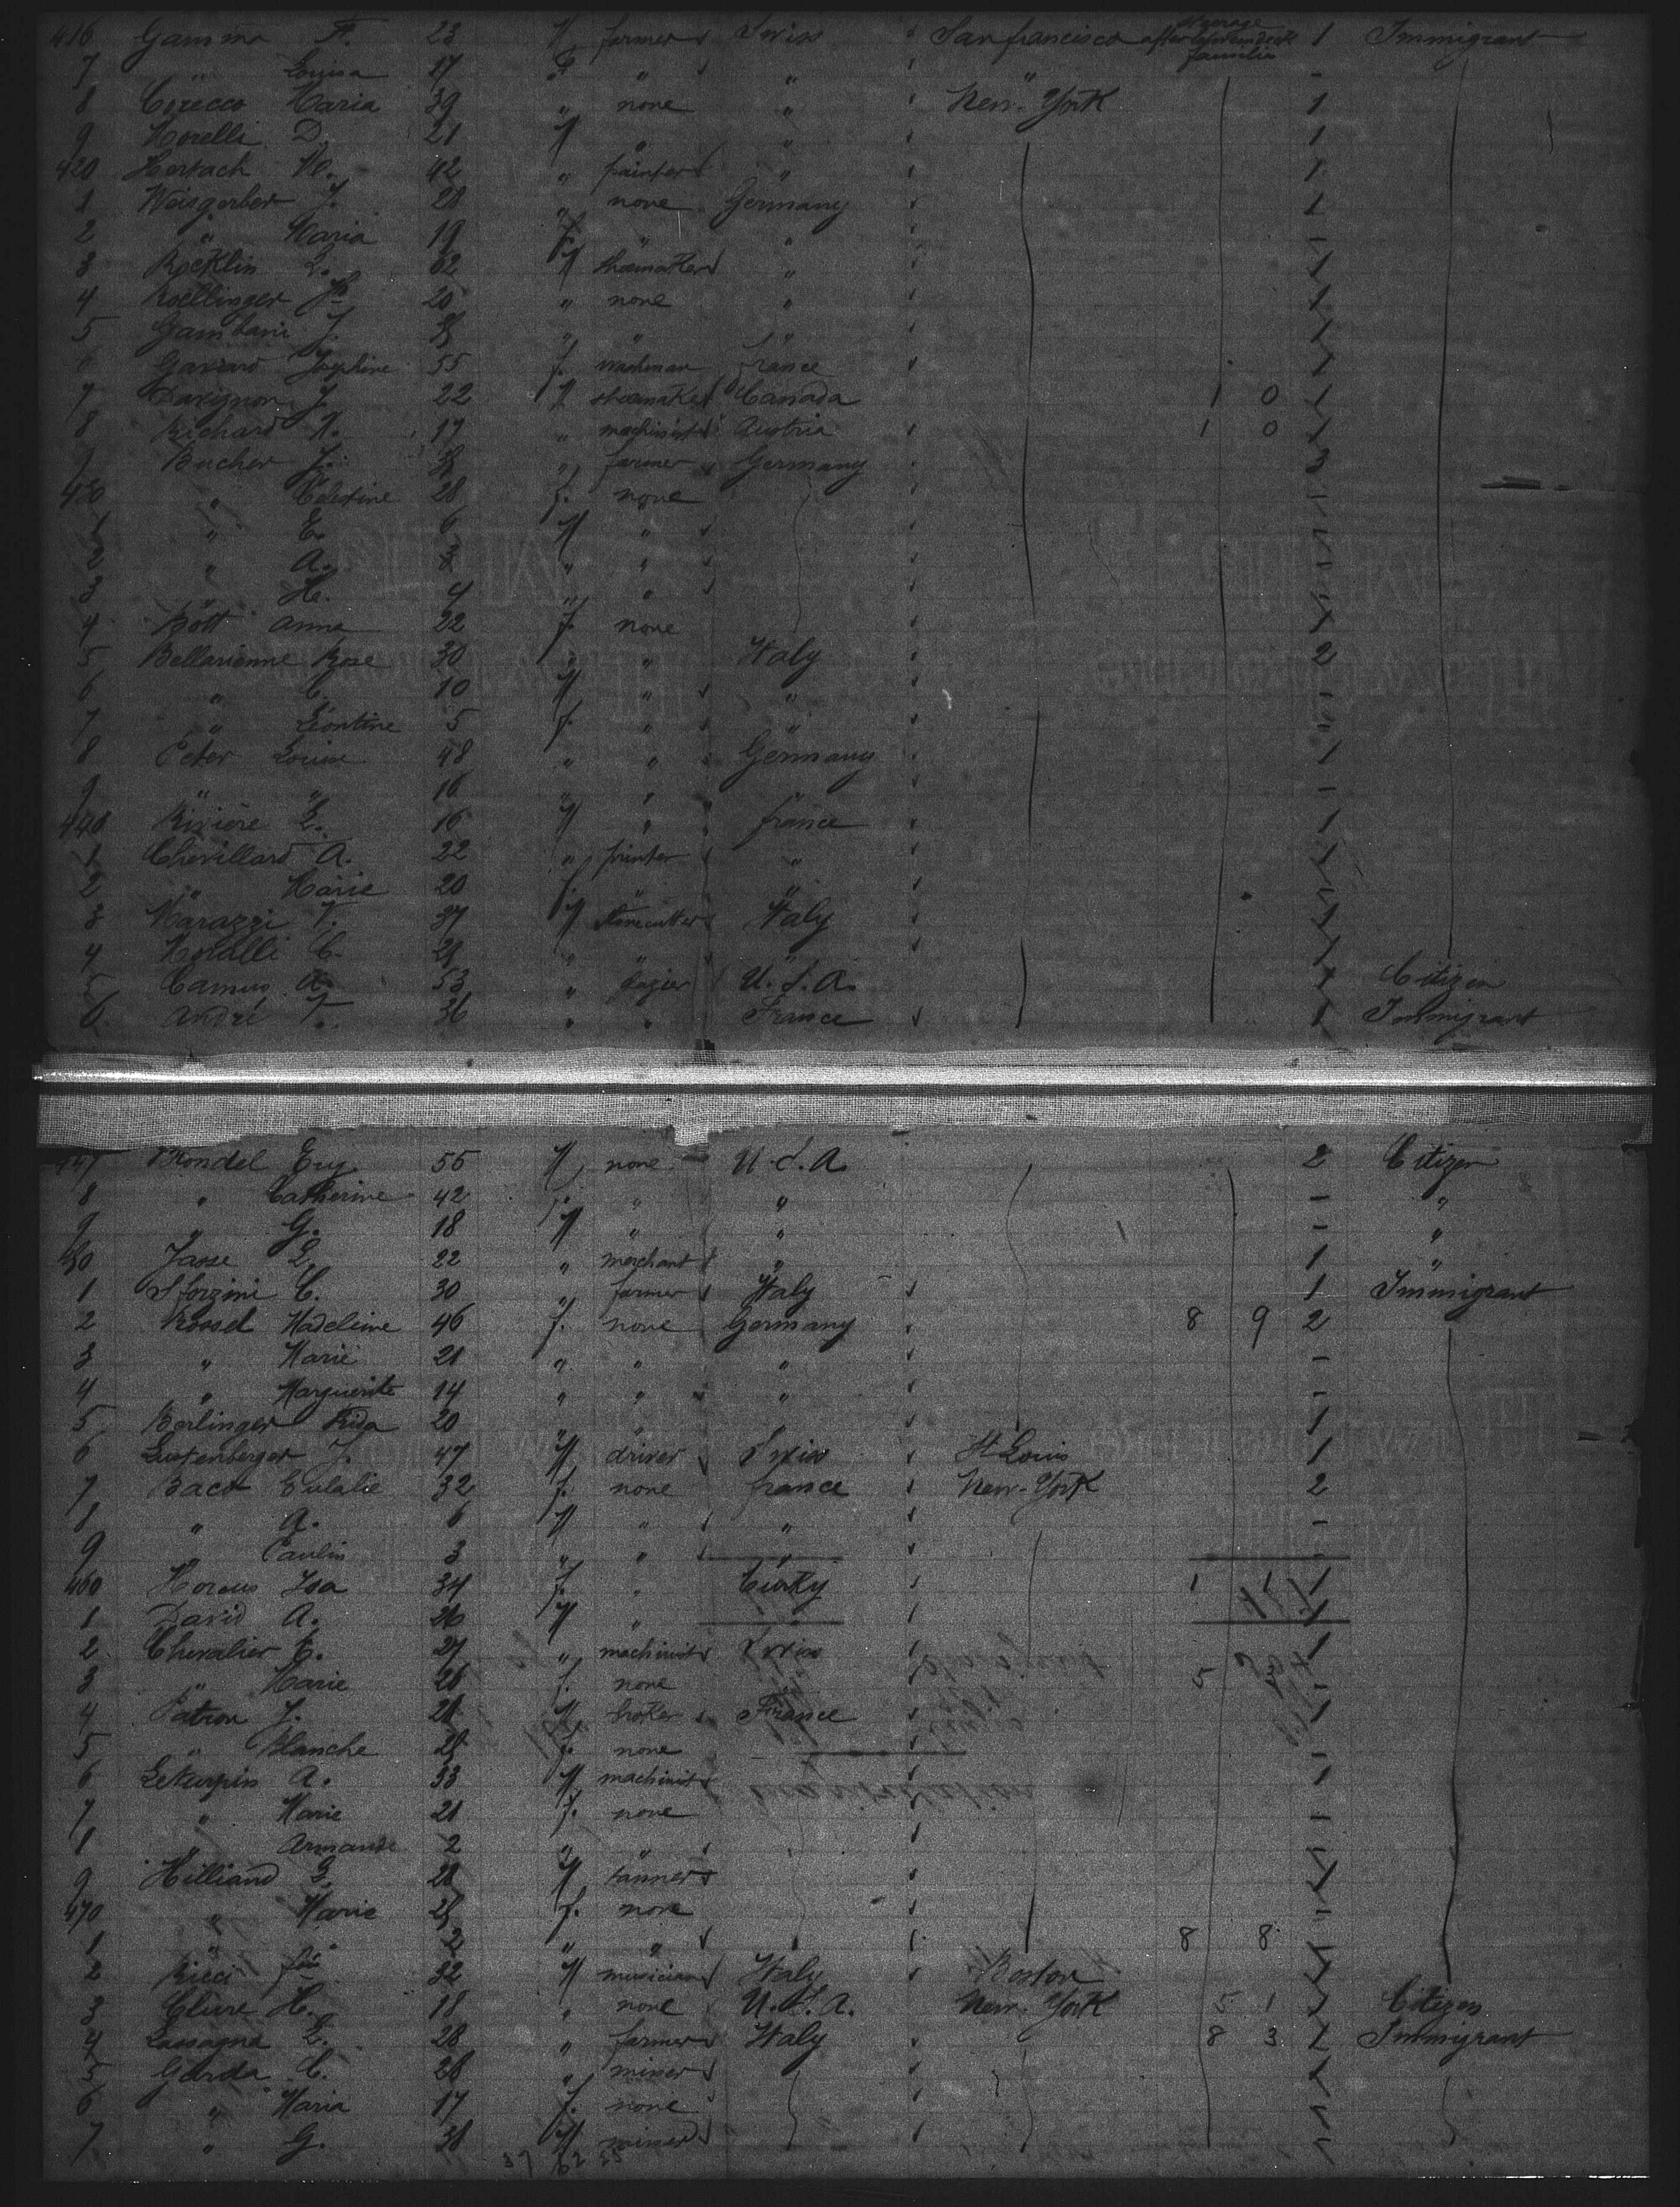 416 Gamma F. 23 M farmer Swiss San francisco steerage after 1 Immigrant
7 " Louisa 17 f. " " " -
8 Corecco Maria 39 " none " New-York 1
9 Morelli D. 21 M " " 1
420 Hortach M. 42 " painter " 1
1 Weisgerber J. 28 " none Germany 1
2 " Maria 19 f. " " -
3 Rocklin L. 62 M shoemaker " 1
4 Roellinger Jh 20 " none " 1
5 Gambani J. " " " 1
6 Josephine 55 f. France 1
7 Davignon J. 22 M shoemaker Canada 1 0 1
8 Richard X. 17 " machinist Austria 1 0 1
9 Bucher J. " farmer Germany 3
430 " Celestine 28 f. none -
1 " E. 6 M " -
2 " A. " " -
3 " H. 4 " " -
4 Bott Anna 22 f. none 1
5 Bellarienne Rose 30 " " Italy 2
6 " C. 10 M " " -
7 " Léontine 5 f. " " "
8 Peter Louise 48 " " Germany 1
9 " " 16 " " " -
440 Rivière E. 16 M " france 1
1 Chevillard A. 22 " printer " 1
2 " Marie 20 f. " " -
3 Marazzi V. 37 M stonecutter Italy 1
4 Moralli C. " " " 1
5 Camus A. 53 " U.S.A. 1 Citizen
6 André F. 36 " " France 1 Immigrant
447 Blondel Eug. 55 M none U.S.A. 2 Citizen
8 " Catherine 42 f. " " - "
9 " G. 18 M " " - "
450 Jasse L. 22 " merchant " 1 "
1 Sforzini C. 30 " farmer Italy 1 Immigrant
2 Rossel Madeleine 46 f. none Germany 8 9 2
3 " Marie 21 " " " -
4 " Marguerite 14 " " " -
5 Berlinger Frida 20 " " 1
6 Lustenberger J. 47 M driver Swiss St Louis 1
7 Bacot Eulalie 32 f. none france New-York 2
8 " A. 6 M " " -
9 " Paulin 3 " " " -
460 Isa 34 f. " Turky 1 1 1
1 David A. 26 M " " 1
2 Chevalier E. 27 " machinist Swiss 1
3 " Marie 26 f. none 5 3 -
4 Patron J. 21 M broker France 1
5 " Blanche f. none -
6 Leturpin A. 33 M machinist 1
7 " Marie 21 f. none -
8 " Armande 2 " " -
9 Hilliand G. 28 M tanner 1
470 " Marie f. none -
1 " " 2 " " 8 8 -
2 Ricci 32 M musician Italy Boston 1
3 Clure H. 18 " none U.S.A. New-York 5 1 1 Citizen
4 Lassagna L. 28 " farmer Italy 8 3 1 Immigrant
5 Garda C. 26 " miner 1
6 " Maria 17 f. none -
7 " G. M miner -
37 62 55